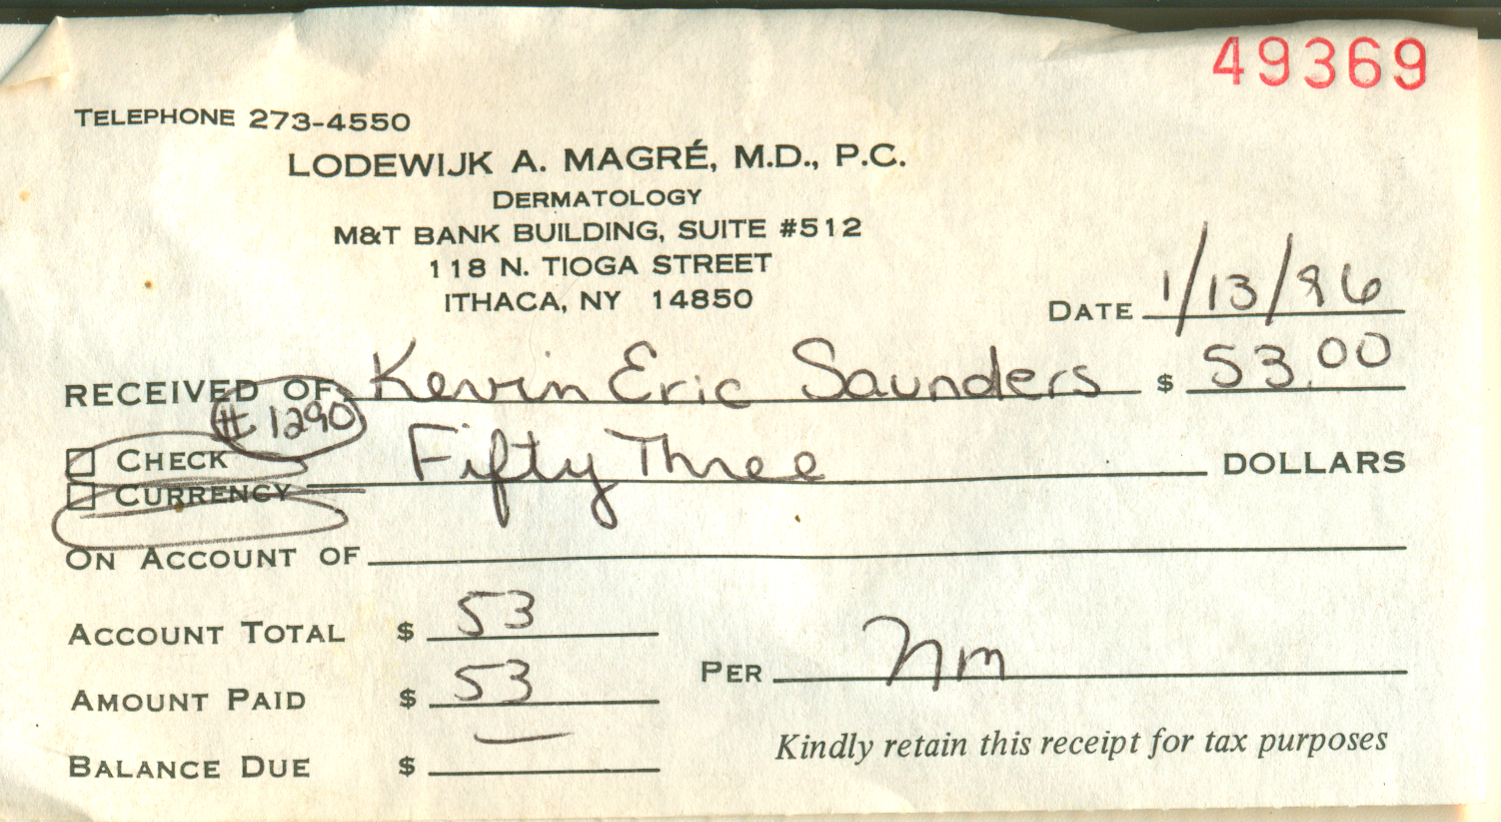 49369
TELEPHONE 273-4550
LODEWIJK A. MAGRÉ, M.D., P.C.
DERMATOLOGY
M&T BANK BUILDING, SUITE #512
118 N. TIOGA STREET
ITHACA, NY 14850
DATE 1/13/96
RECEIVED OF Kevin Eric Saunders $ 53.00
#1290
CHECK Fifty Three DOLLARS
CURRENCY
ON ACCOUNT OF
ACCOUNT TOTAL $ 53
AMOUNT PAID $ 53
PER nm
BALANCE DUE $ —
Kindly retain this receipt for tax purposes